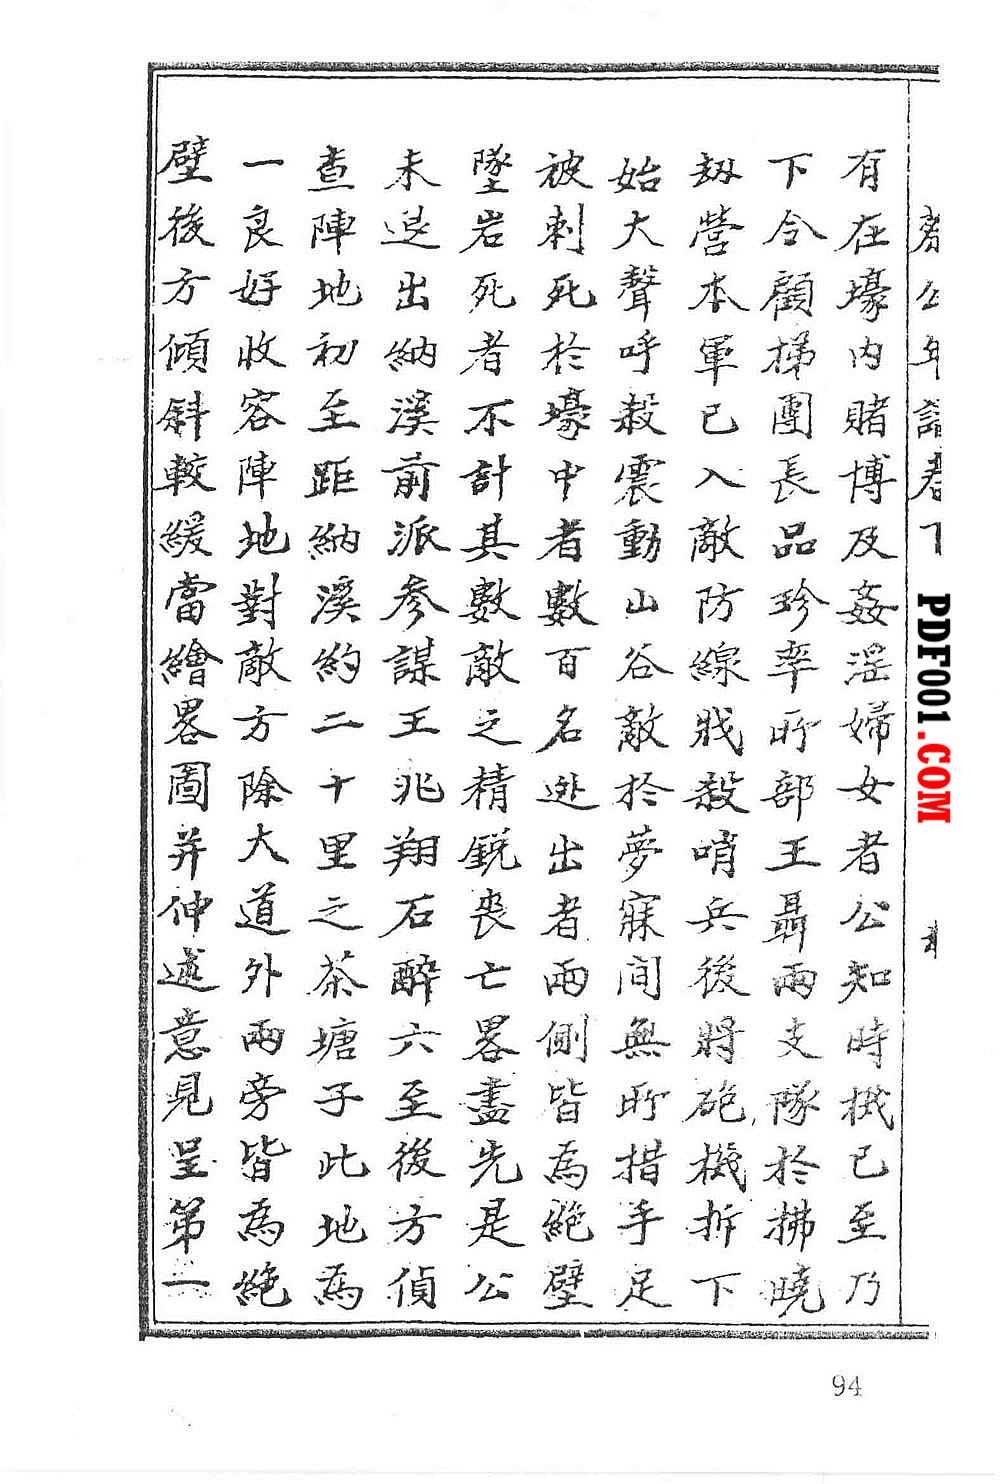 有在壕内賭博及姦淫婦女者公知時機已至乃
下令顧梯團長品珍率所部王聶兩支隊於拂曉
刼營本軍已入敵防線戕殺哨兵後將砲機拆下
始大聲呼殺震動山谷敵於夢寐間無所措手足
被刺死於壕中者數百名逃出者兩側皆為絶壁
墜岩死者不計其數敵之精鋭喪亡畧盡先是公
未退出納溪前派參謀王兆翔石醉六至後方偵
查陣地初至距納溪約二十里之茶塘子此地為
一良好收容陣地對敵方除大道外兩旁皆為絶
壁後方傾斜較緩當繪畧圖并伸述意見呈第一
公年譜卷下
PDF001.COM
94